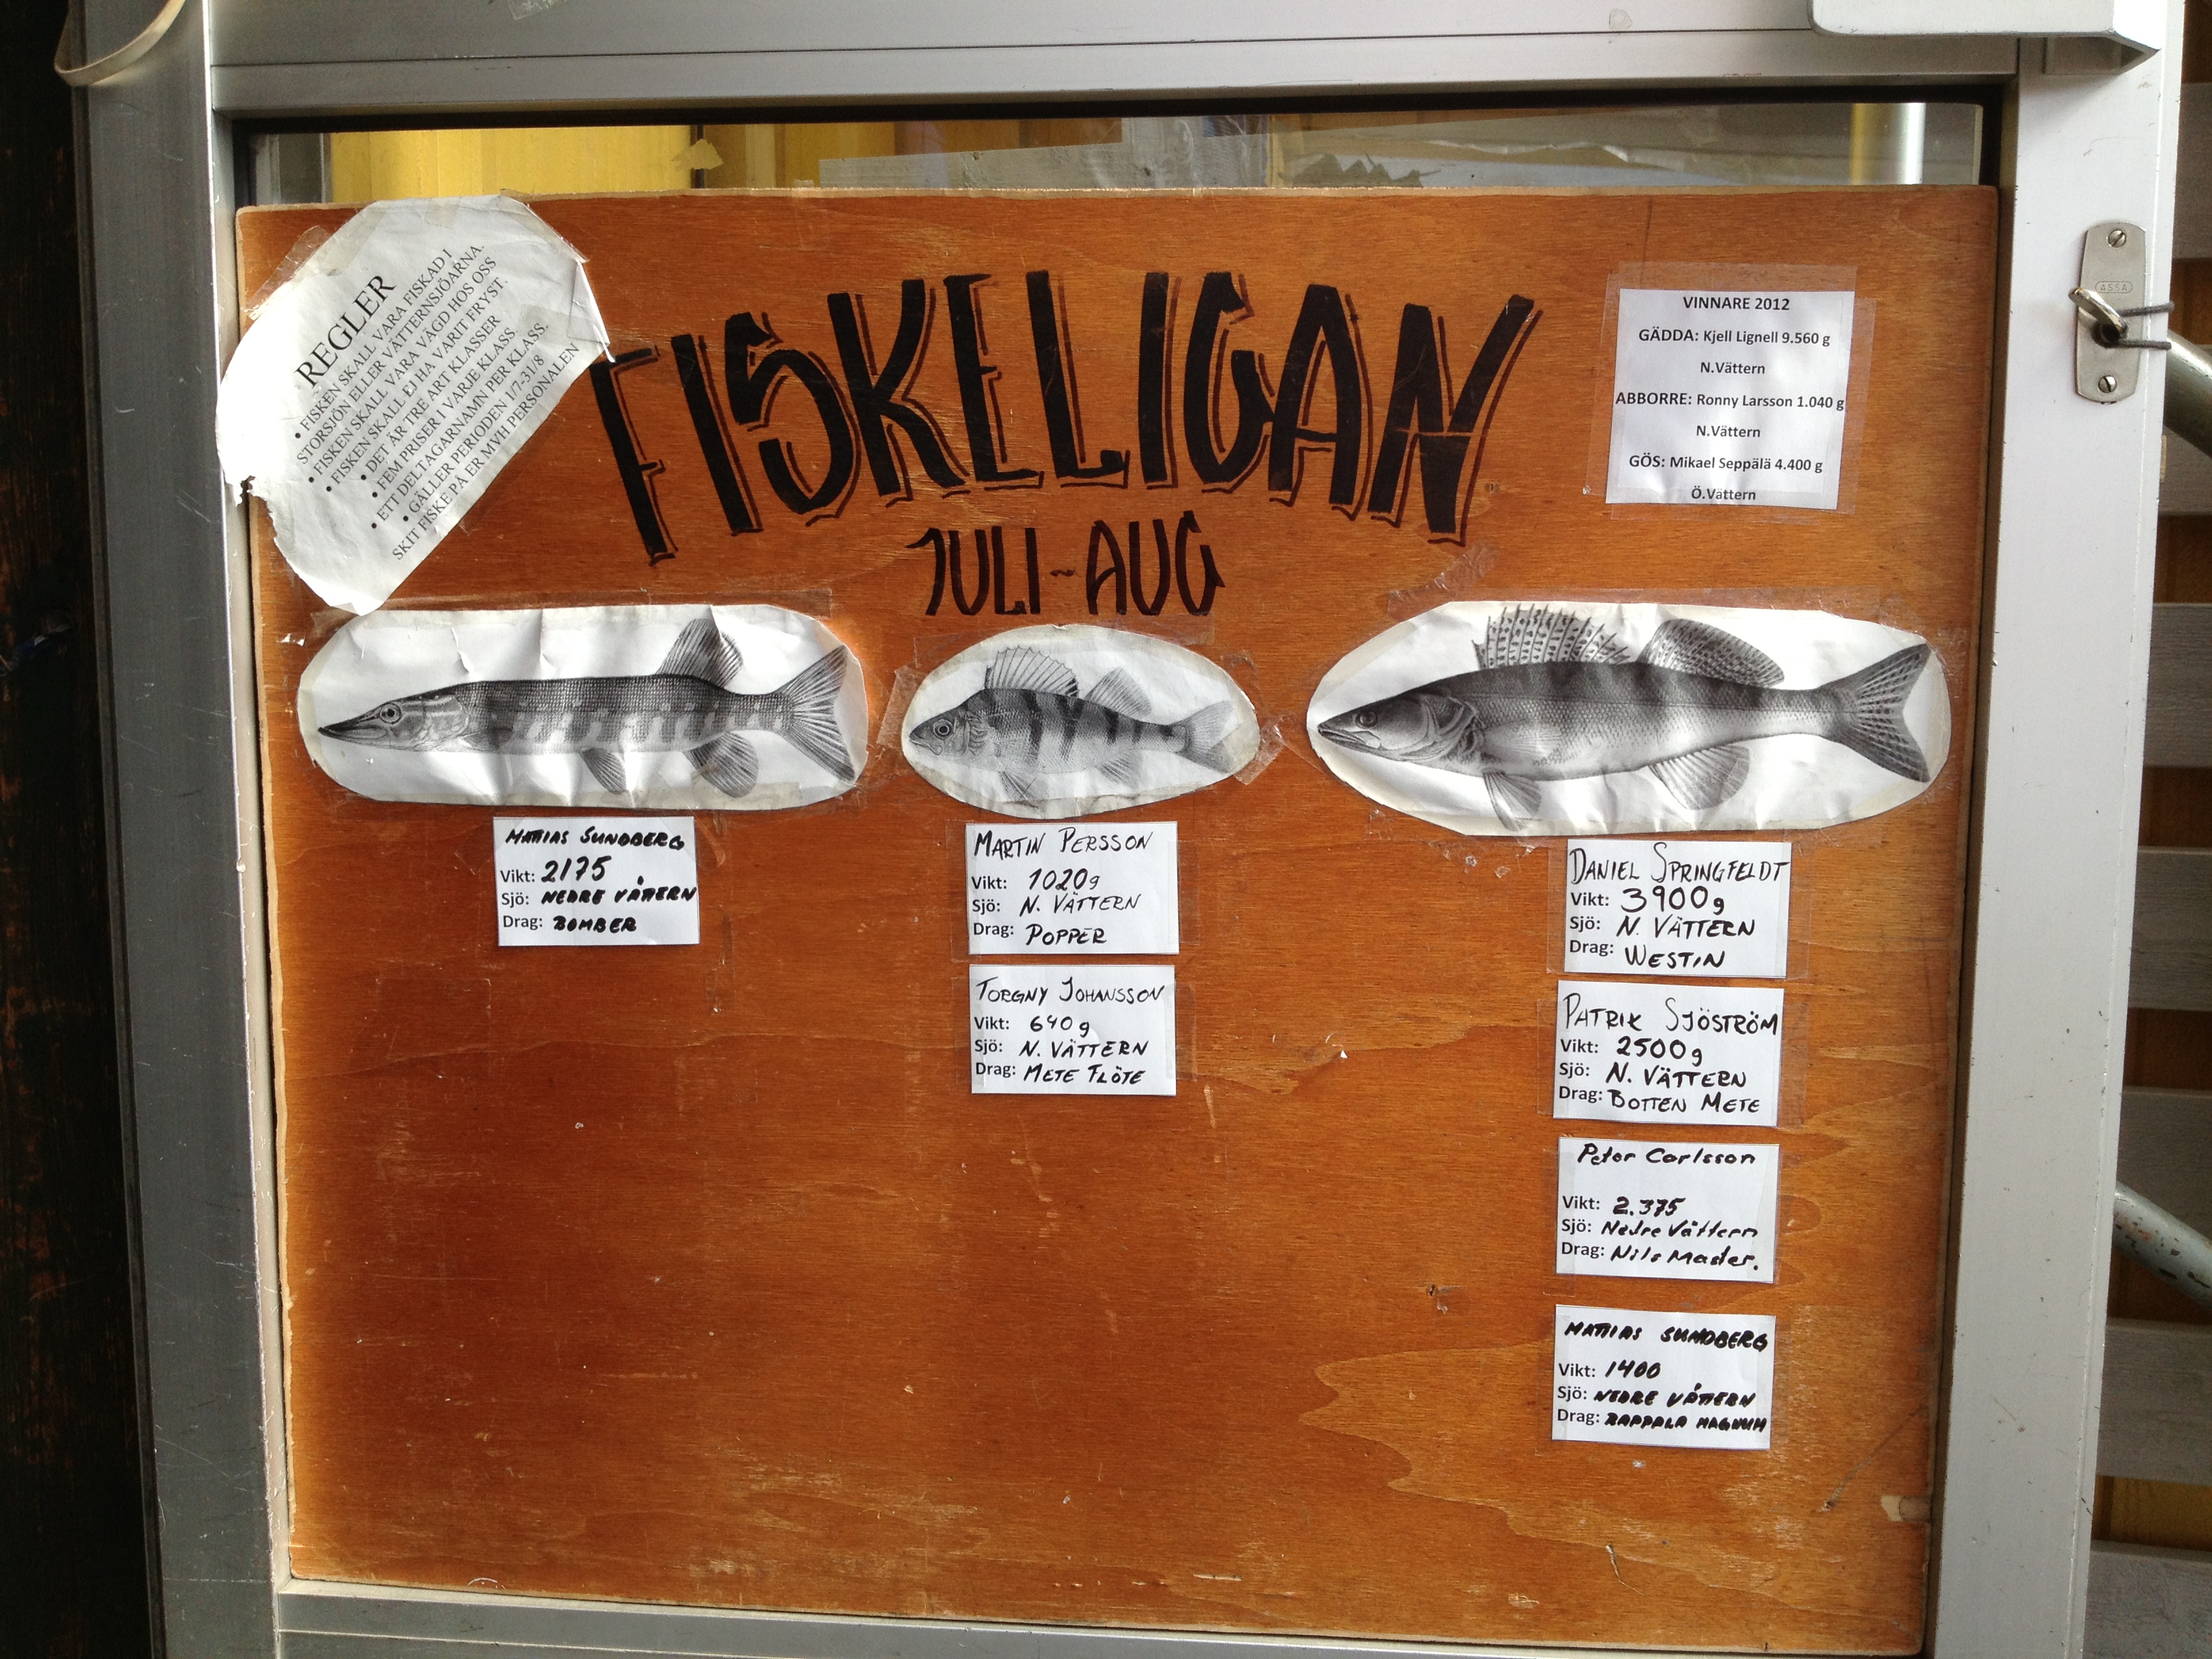 REGLER
• FISKEN SKALL VARA FISKAD I
STORSJÖN ELLER VÄTTERNSJÖARNA.
• FISKEN SKALL VARA VÄGD HOS OSS
• FISKEN SKALL EJ HA VARIT FRYST.
• DET ÄR TRE ART KLASSER
• FEM PRISER I VARJE KLASS
• ETT DELTAGARNAMN PER KLASS.
• GÄLLER PERIODEN 1/7-31/8
SKIT FISKE PÅ ER MVH PERSONALEN
FISKELIGAN
JULI-AUG
VINNARE 2012
GÄDDA: Kjell Lignell 9.560 g
N.Vättern
ABBORRE: Ronny Larsson 1.040 g
N.Vättern
GÖS: Mikael Seppälä 4.400 g
Ö.Vättern
MATTIAS SUNDBERG
Vikt: 2175
Sjö: NEDRE VÄTTERN
Drag: BOMBER
MARTIN PERSSON
Vikt: 1020g
Sjö: N. VÄTTERN
Drag: POPPER
TORGNY JOHANSSON
Vikt: 640g
Sjö: N. VÄTTERN
Drag: METE FLÖTE
DANIEL SPRINGFELDT
Vikt: 3900g
Sjö: N. VÄTTERN
Drag: WESTIN
PATRIK SJÖSTRÖM
Vikt: 2500g
Sjö: N. VÄTTERN
Drag: BOTTEN METE
Peter Carlsson
Vikt: 2.375
Sjö: Nedre Vättern
Drag: Nils Master.
MATTIAS SUNDBERG
Vikt: 1400
Sjö: NEDRE VÄTTERN
Drag: RAPPALA MAGNUM
ASSA